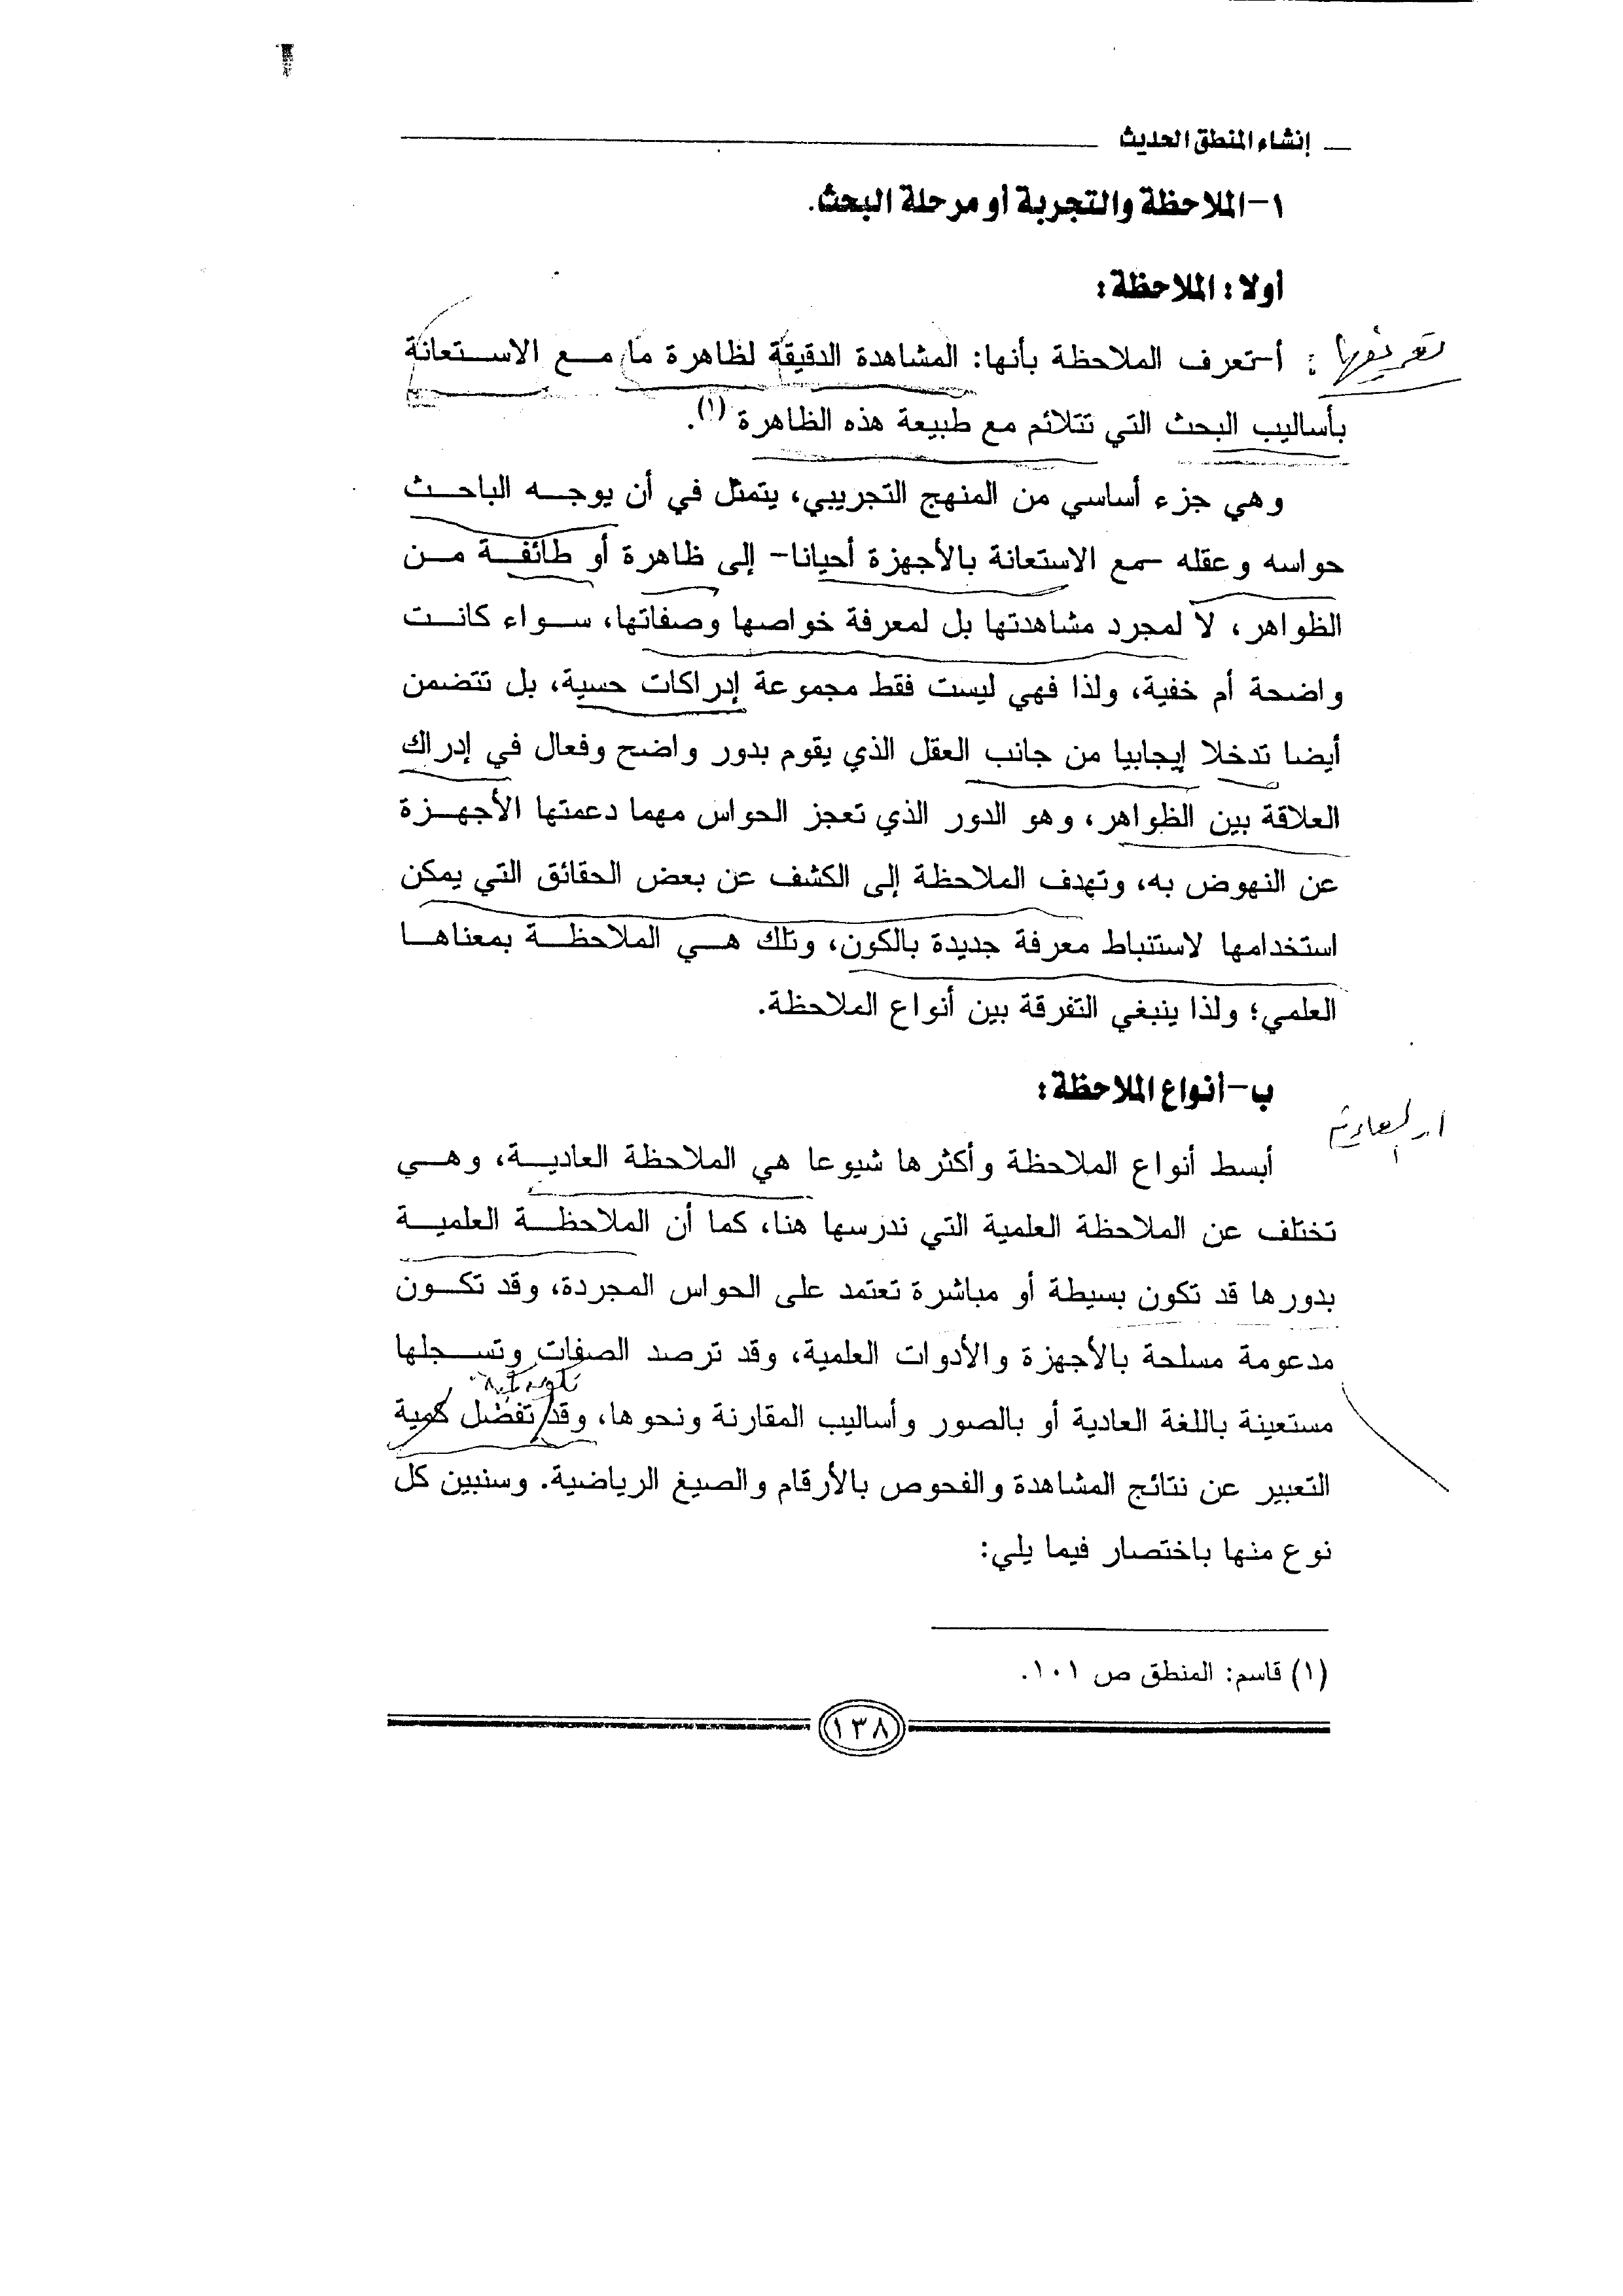 إنشاء المنطق الحديث
١-الملاحظة والتجربة أو مرحلة البحث.
أولا: الملاحظة:
تعريفها : أ-تعرف الملاحظة بأنها: المشاهدة الدقيقة لظاهرة ما مع الاستعانة
بأساليب البحث التي تتلائم مع طبيعة هذه الظاهرة (١).
وهي جزء أساسي من المنهج التجريبي، يتمثل في أن يوجه الباحث
حواسه وعقله -مع الاستعانة بالأجهزة أحيانا- إلى ظاهرة أو طائفة من
الظواهر، لا لمجرد مشاهدتها بل لمعرفة خواصها وصفاتها، سواء كانت
واضحة أم خفية، ولذا فهي ليست فقط مجموعة إدراكات حسية، بل تتضمن
أيضا تدخلا إيجابيا من جانب العقل الذي يقوم بدور واضح وفعال في إدراك
العلاقة بين الظواهر، وهو الدور الذي تعجز الحواس مهما دعمتها الأجهزة
عن النهوض به، وتهدف الملاحظة إلى الكشف عن بعض الحقائق التي يمكن
استخدامها لاستنباط معرفة جديدة بالكون، وتلك هي الملاحظة بمعناها
العلمي؛ ولذا ينبغي التفرقة بين أنواع الملاحظة.
ب-أنواع الملاحظة:
أبسط أنواع الملاحظة وأكثرها شيوعا هي الملاحظة العادية، وهي
تختلف عن الملاحظة العلمية التي ندرسها هنا، كما أن الملاحظة العلمية
بدورها قد تكون بسيطة أو مباشرة تعتمد على الحواس المجردة، وقد تكون
مدعومة مسلحة بالأجهزة والأدوات العلمية، وقد ترصد الصفات وتسجلها
مستعينة باللغة العادية أو بالصور وأساليب المقارنة ونحوها، وقد تفضل كمية
التعبير عن نتائج المشاهدة والفحوص بالأرقام والصيغ الرياضية. وسنبين كل
نوع منها باختصار فيما يلي:
(١) قاسم: المنطق ص ١٠١.
١٣٨